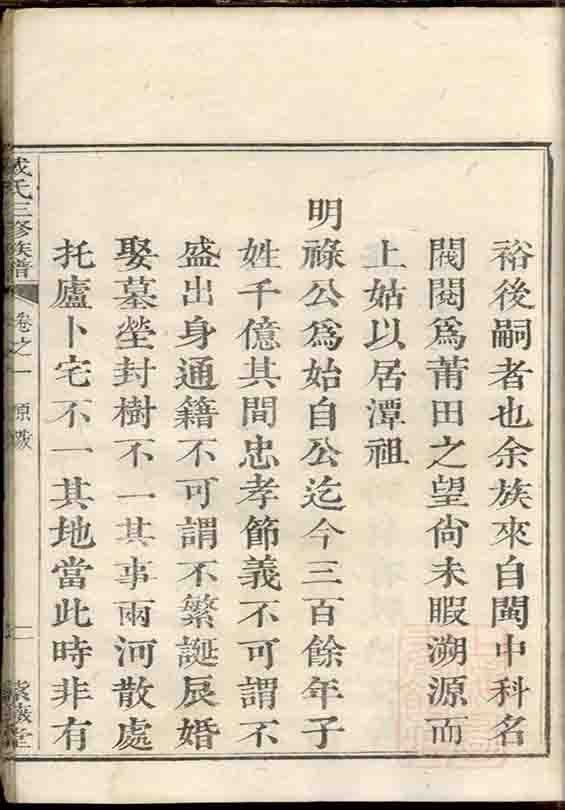 裕後嗣者也余族來自閩中科名
閥閱爲莆田之望尙未暇溯源而
上姑以居潭祖
明祿公爲始自公迄今三百餘年子
姓千億其間忠孝節義不可謂不
盛出身通籍不可謂不繁誕辰婚
娶墓塋封樹不一其事兩河散處
托廬卜宅不一其地當此時非有
氏三修族譜 卷之一 原 二 紫薇堂